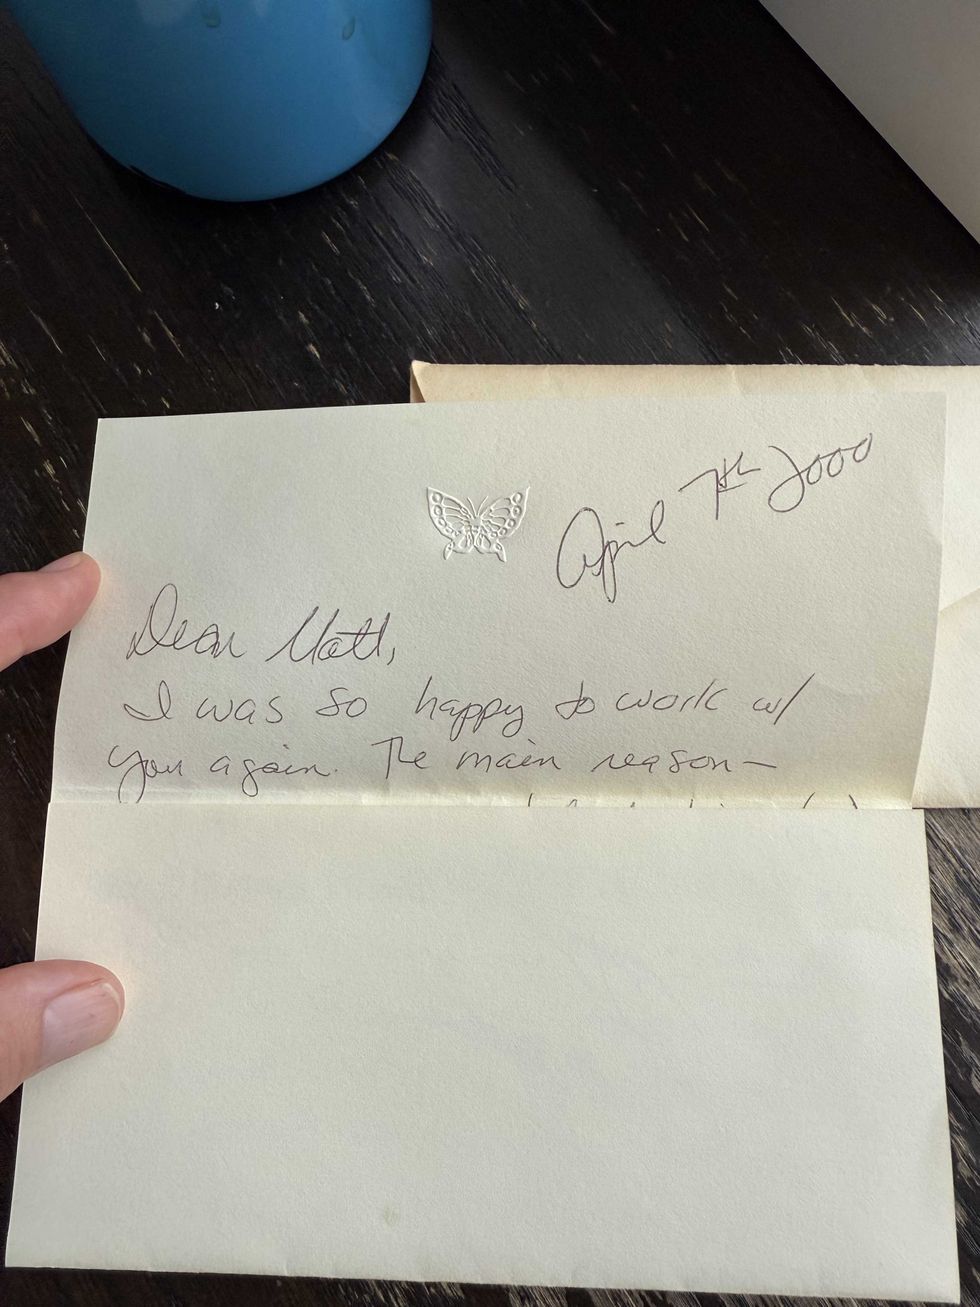 April 7th 2000
Dear Matt,
I was so happy to work w/
you again. The main reason–